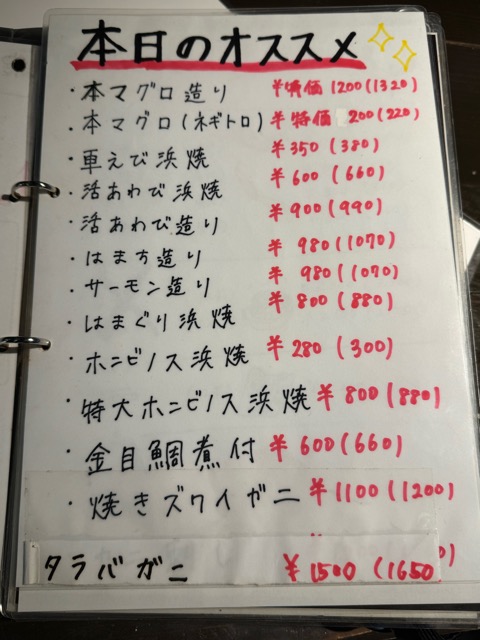 本日のオススメ
・本マグロ造り ¥特価 1200(1320)
・本マグロ(ネギトロ) ¥特価 200(220)
・車えび浜焼 ¥350(380)
・活あわび浜焼 ¥600(660)
・活あわび造り ¥900(990)
・はまち造り ¥980(1070)
・サーモン造り ¥980(1070)
・はまぐり浜焼 ¥800(880)
・ホンビノス浜焼 ¥280(300)
・特大ホンビノス浜焼 ¥800(880)
・金目鯛煮付 ¥600(660)
・焼きズワイガニ ¥1100(1200)
タラバガニ ¥1500(1650)